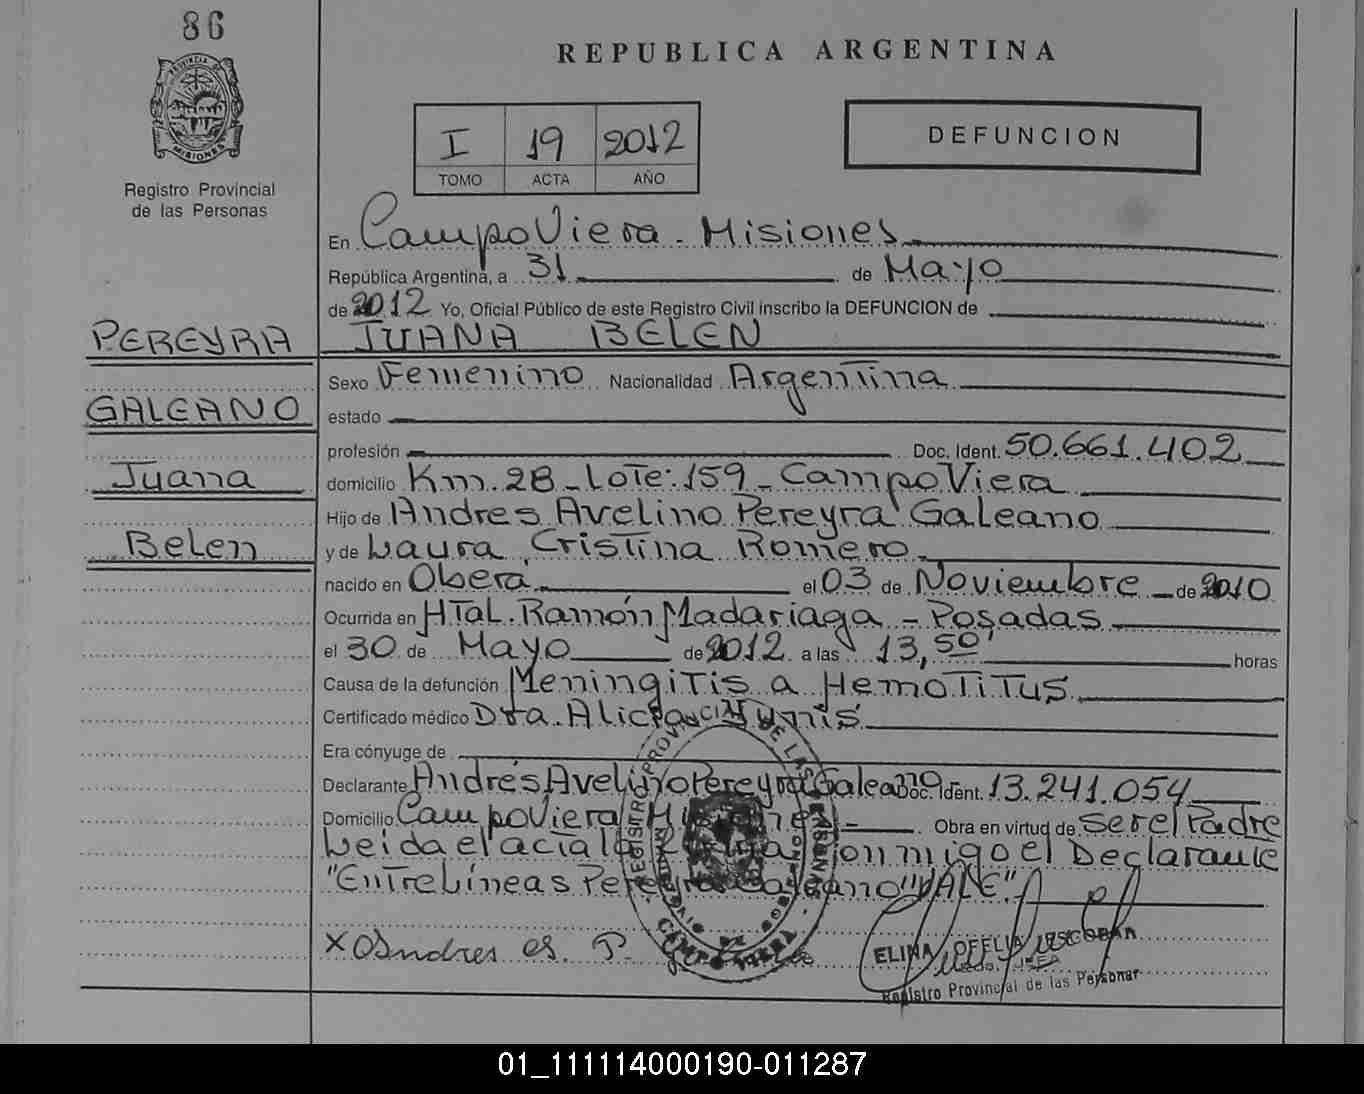 86
PROVINCIA DE
MISIONES
Registro Provincial
de las Personas
REPUBLICA ARGENTINA
I 19 2012
TOMO ACTA AÑO
DEFUNCION
En Campo Viera - Misiones
República Argentina, a 31 de Mayo
de 2012 Yo, Oficial Público de este Registro Civil inscribo la DEFUNCION de
PEREYRA JUANA BELEN
Sexo Femenino Nacionalidad Argentina
GALEANO estado
profesión Doc. Ident. 50.661.402
Juana domicilio Km. 28 - Lote: 159 - Campo Viera
Hijo de Andres Avelino Pereyra Galeano
Belen y de Laura Cristina Romero
nacido en Oberá el 03 de Noviembre de 2010
Ocurrida en HTal. Ramón Madariaga - Posadas
el 30 de Mayo de 2012 a las 13,50' horas
Causa de la defunción Meningitis a Hemotitus
Certificado médico Dra. Alicia Yunis
Era cónyuge de
Declarante Andrés Avelino Pereyra Galeano Doc. Ident. 13.241.054
Domicilio Campo Viera Misiones - Obra en virtud de Ser el Padre
Leida el acta la conmigo el Declarante
"Entre Líneas Pereyra Galeano" VALE".
x Andres es. P.
ELINA OFELIA ESCOBAR
Registro Provincial de las Personas
CAMPO VIERA
01_111114000190-011287